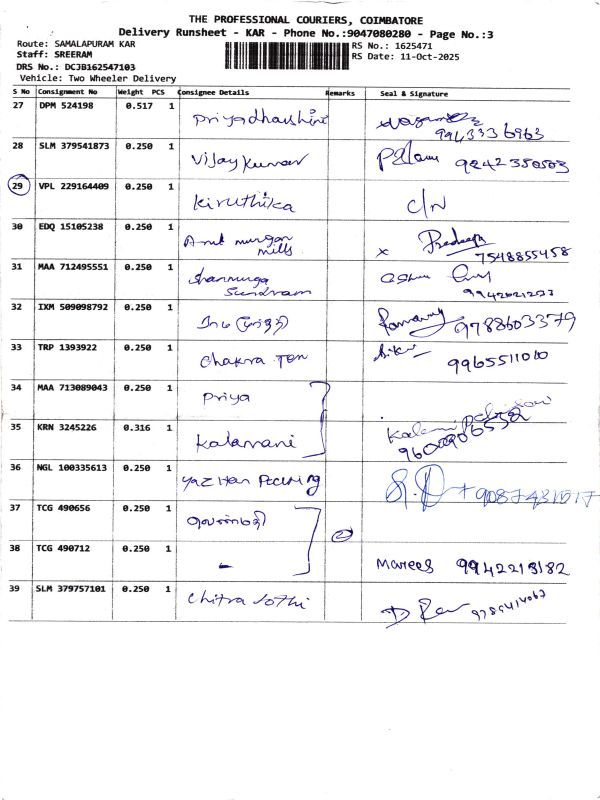 THE PROFESSIONAL COURIERS, COIMBATORE
Delivery Runsheet - KAR - Phone No.:9047080280 - Page No.:3
Route: SAMALAPURAM KAR
Staff: SREERAM
DRS No.: DCJB162547103
Vehicle: Two Wheeler Delivery
RS No.: 1625471
RS Date: 11-Oct-2025
S No Consignment No Weight PCS Consignee Details Remarks Seal & Signature
27 DPM 524198 0.517 1 Priyadharshini 9943336963
28 SLM 379541873 0.250 1 Vijay Kumar 9242350503
29 VPL 229164409 0.250 1 Kiruthika C/N
30 EDQ 15105238 0.250 1 murugan mills x Pradeep 7548855458
31 MAA 712495551 0.250 1 Shanmuga Sundram
32 IXM 509098792 0.250 1 9788603379
33 TRP 1393922 0.250 1 Chakra Tex 9965511010
34 MAA 713089043 0.250 1 Priya
35 KRN 3245226 0.316 1 Kalavani
36 NGL 100335613 0.250 1
37 TCG 490656 0.250 1
2
38 TCG 490712 0.250 1 - Marees 9942213182
39 SLM 379757101 0.250 1 Chitra Jothi